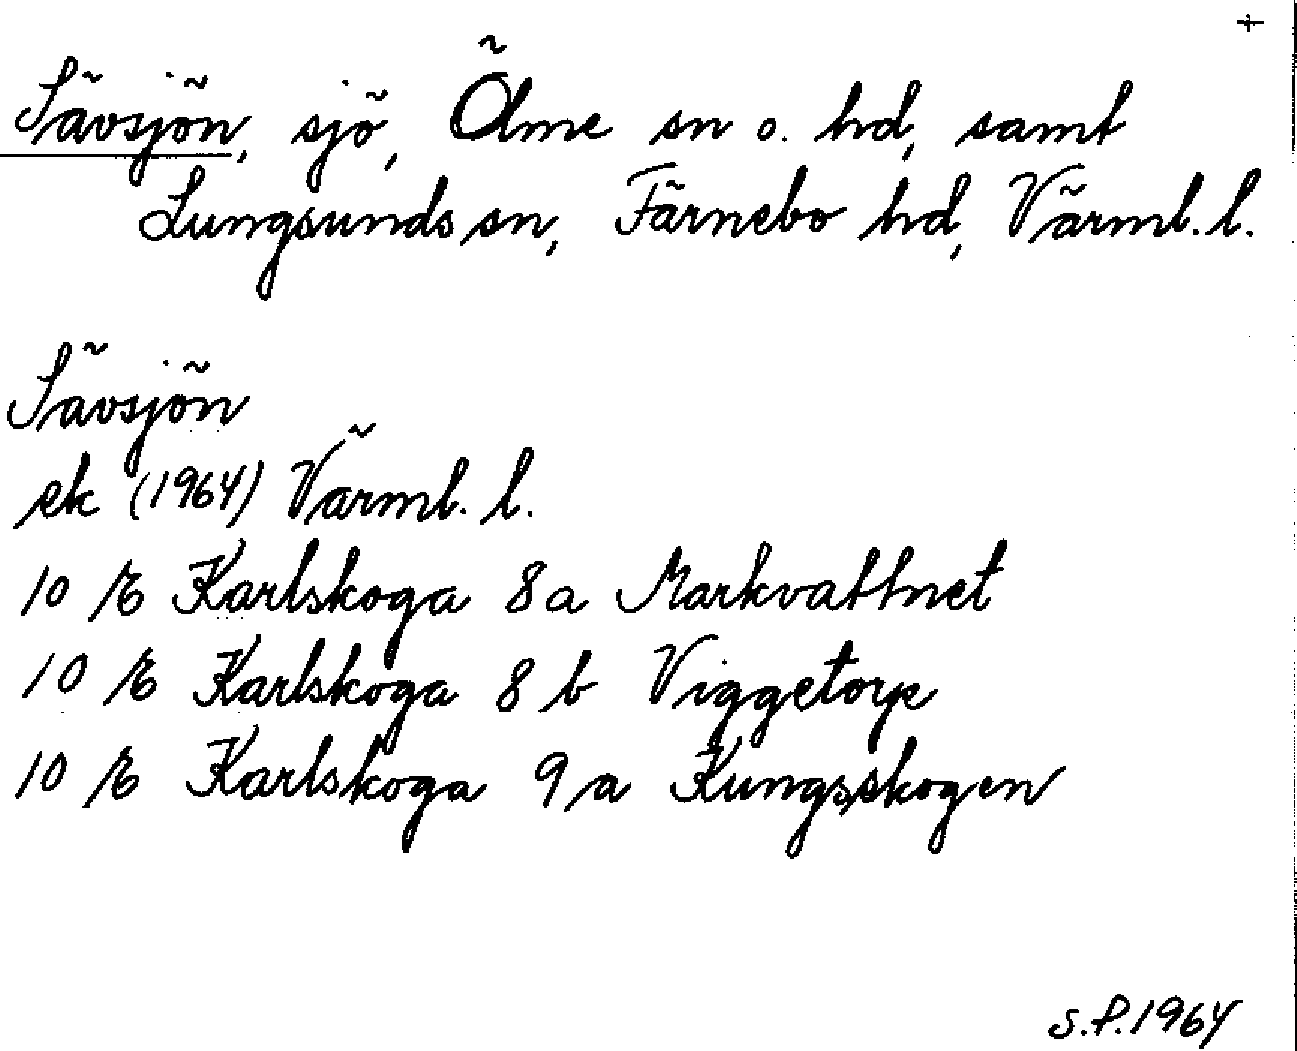 +
Sävsjön, sjö, Ölme sn o. hd, samt
Lungsunds sn, Färnebo hd, Värml. l.
Sävsjön
ek (1964) Värml. l.
10 E Karlskoga 8a Markvattnet
10 E Karlskoga 8 b Viggetorp
10 E Karlskoga 9 a Kungsskogen
S.P. 1964